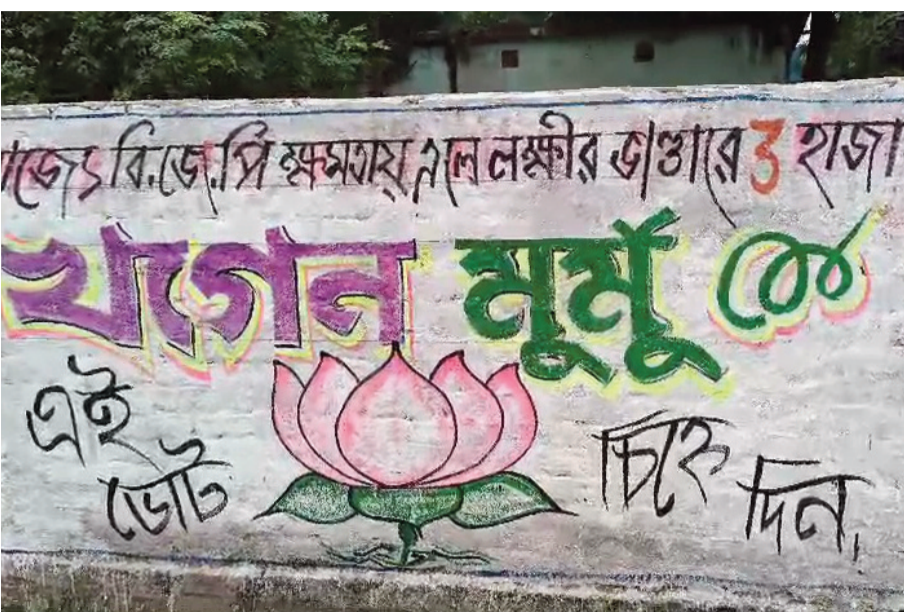 রাজ্যে বি.জে.পি ক্ষমতায় এলে লক্ষ্মীর ভাণ্ডারে ৩ হাজা
খগেন মুর্মু কে
এই চিহ্নে
ভোট দিন,